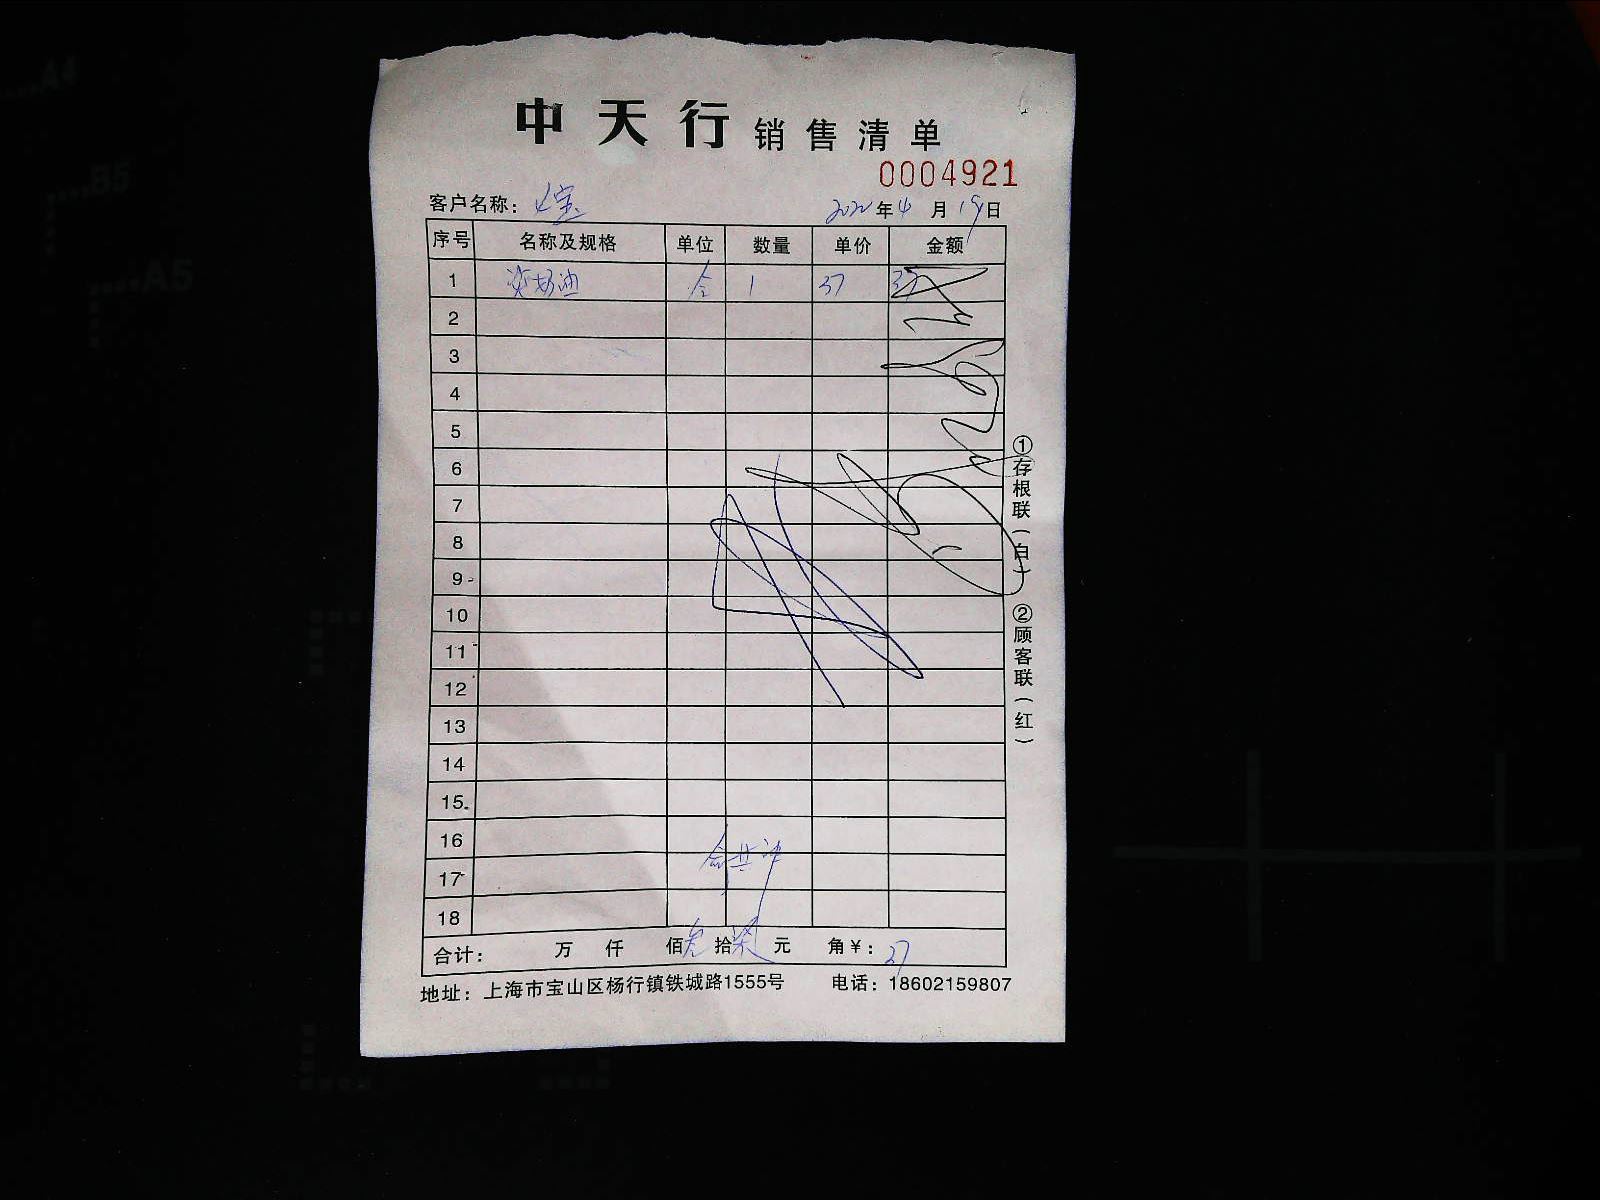 中天行 销售清单
0004921
客户名称： 宝
2022年4月19日
序号 名称及规格 单位 数量 单价 金额
1 奶油 1 37 37
2
3
4
5
6
7
8
9
10
11
12
13
14
15
16
17
18
合计： 万 仟 佰 拾柒元 角¥：
地址：上海市宝山区杨行镇铁城路1555号 电话：18602159807
①存根联（白） ②顾客联（红）